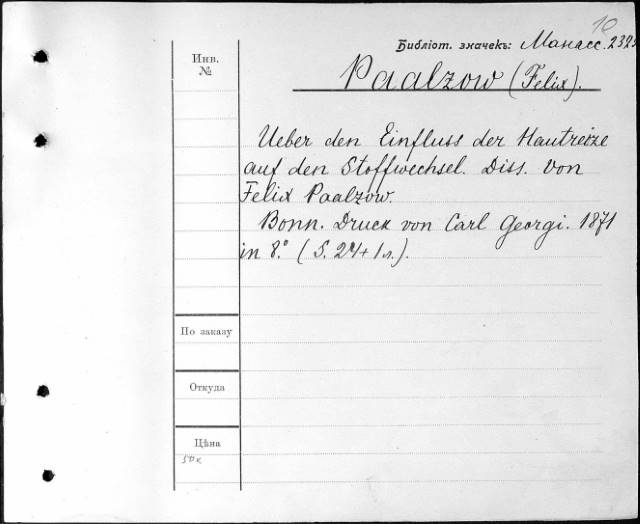 10
Библіот. значекъ: Манасс. 232
Инв.
№
Paalzow (Felix).
Ueber den Einfluss der Hautreize
auf den Stoffwechsel. Diss. von
Felix Paalzow.
Bonn. Druck von Carl Georgi. 1871
in 8.° (S. 24 + 1 л.).
По заказу
Откуда
Цѣна
50к